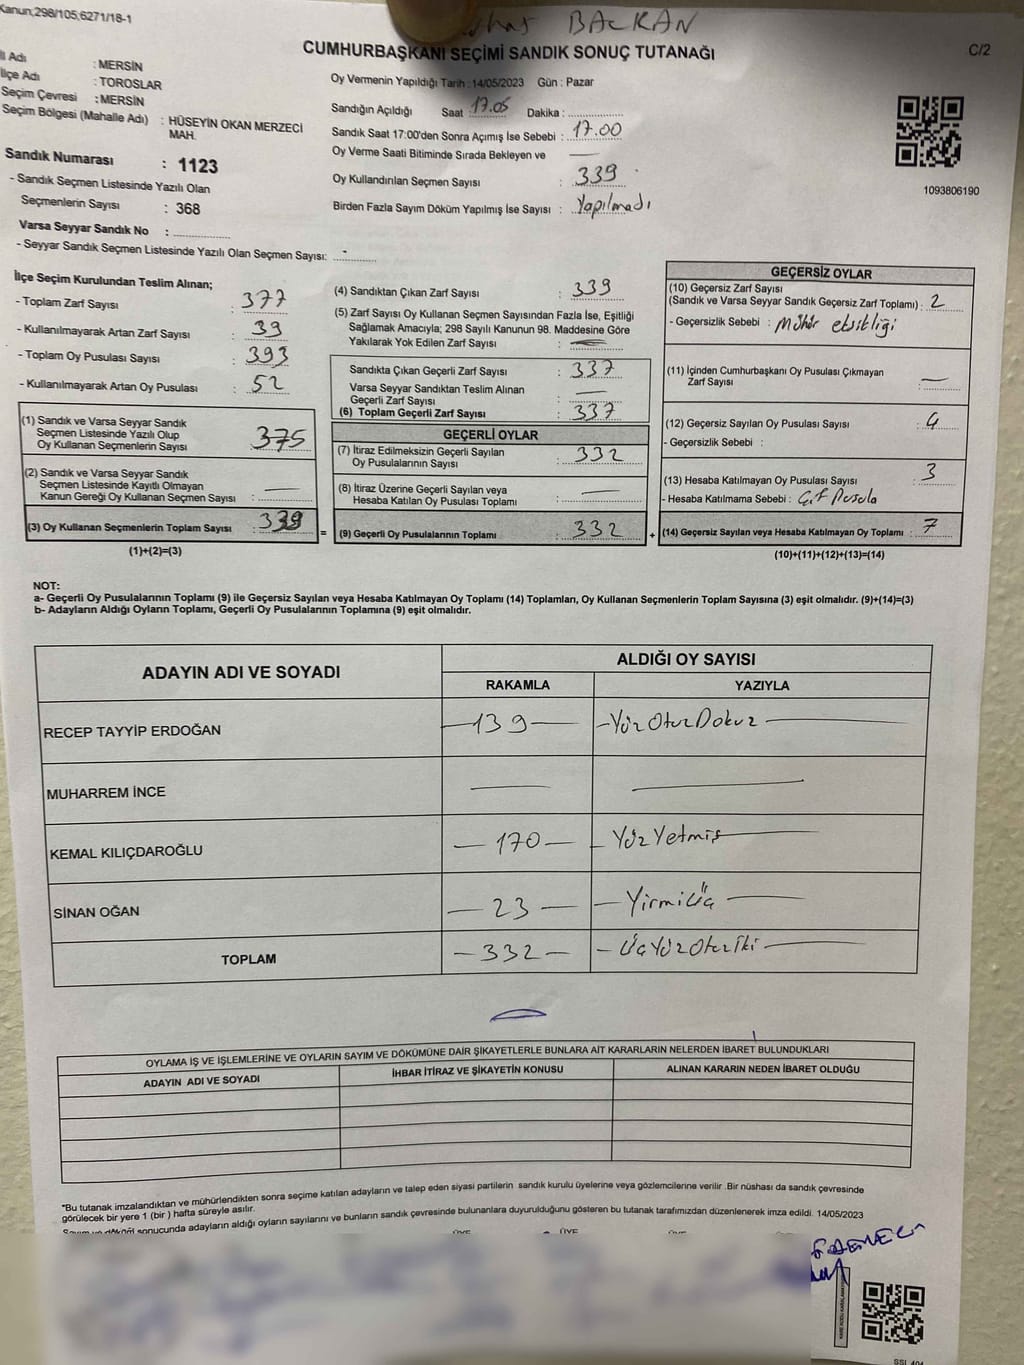 Kanun;298/105;6271/18-1
BALKAN
CUMHURBAŞKANI SEÇİMİ SANDIK SONUÇ TUTANAĞI
C/2
İl Adı : MERSİN
İlçe Adı : TOROSLAR
Seçim Çevresi : MERSİN
Seçim Bölgesi (Mahalle Adı) : HÜSEYİN OKAN MERZECİ
MAH.
Sandık Numarası : 1123
- Sandık Seçmen Listesinde Yazılı Olan
Seçmenlerin Sayısı : 368
Varsa Seyyar Sandık No :
- Seyyar Sandık Seçmen Listesinde Yazılı Olan Seçmen Sayısı: -
Oy Vermenin Yapıldığı Tarih : 14/05/2023 Gün : Pazar
Sandığın Açıldığı Saat 17.05 Dakika :
Sandık Saat 17:00'den Sonra Açımış İse Sebebi : 17.00
Oy Verme Saati Bitiminde Sırada Bekleyen ve —
Oy Kullandırılan Seçmen Sayısı : 339
Birden Fazla Sayım Döküm Yapılmış İse Sayısı : Yapılmadı
1093806190
İlçe Seçim Kurulundan Teslim Alınan;
- Toplam Zarf Sayısı : 377
- Kullanılmayarak Artan Zarf Sayısı : 39
- Toplam Oy Pusulası Sayısı : 393
- Kullanılmayarak Artan Oy Pusulası : 52
(1) Sandık ve Varsa Seyyar Sandık
Seçmen Listesinde Yazılı Olup
Oy Kullanan Seçmenlerin Sayısı : 375
(2) Sandık ve Varsa Seyyar Sandık
Seçmen Listesinde Kayıtlı Olmayan
Kanun Gereği Oy Kullanan Seçmen Sayısı : —
(3) Oy Kullanan Seçmenlerin Toplam Sayısı : 339
(1)+(2)=(3)
=
(4) Sandıktan Çıkan Zarf Sayısı : 339
(5) Zarf Sayısı Oy Kullanan Seçmen Sayısından Fazla İse, Eşitliği
Sağlamak Amacıyla; 298 Sayılı Kanunun 98. Maddesine Göre
Yakılarak Yok Edilen Zarf Sayısı : —
Sandıkta Çıkan Geçerli Zarf Sayısı : 337
Varsa Seyyar Sandıktan Teslim Alınan
Geçerli Zarf Sayısı : —
(6) Toplam Geçerli Zarf Sayısı : 337
GEÇERLİ OYLAR
(7) İtiraz Edilmeksizin Geçerli Sayılan
Oy Pusulalarının Sayısı : 332
(8) İtiraz Üzerine Geçerli Sayılan veya
Hesaba Katılan Oy Pusulası Toplamı : —
(9) Geçerli Oy Pusulalarının Toplamı : 332
+
GEÇERSİZ OYLAR
(10) Geçersiz Zarf Sayısı
(Sandık ve Varsa Seyyar Sandık Geçersiz Zarf Toplamı) : 2
- Geçersizlik Sebebi : Mühür eksikliği
(11) İçinden Cumhurbaşkanı Oy Pusulası Çıkmayan
Zarf Sayısı : —
(12) Geçersiz Sayılan Oy Pusulası Sayısı : 4
- Geçersizlik Sebebi :
(13) Hesaba Katılmayan Oy Pusulası Sayısı : 3
- Hesaba Katılmama Sebebi : Çift Pusula
(14) Geçersiz Sayılan veya Hesaba Katılmayan Oy Toplamı : 7
(10)+(11)+(12)+(13)=(14)
NOT:
a- Geçerli Oy Pusulalarının Toplamı (9) ile Geçersiz Sayılan veya Hesaba Katılmayan Oy Toplamı (14) Toplamları, Oy Kullanan Seçmenlerin Toplam Sayısına (3) eşit olmalıdır. (9)+(14)=(3)
b- Adayların Aldığı Oyların Toplamı, Geçerli Oy Pusulalarının Toplamına (9) eşit olmalıdır.
ADAYIN ADI VE SOYADI
ALDIĞI OY SAYISI
RAKAMLA YAZIYLA
RECEP TAYYİP ERDOĞAN — 139 — — Yüz Otuz Dokuz —
MUHARREM İNCE — —
KEMAL KILIÇDAROĞLU — 170 — — Yüz Yetmiş —
SİNAN OĞAN — 23 — — Yirmi Üç —
TOPLAM — 332 — — Üç Yüz Otuz İki —
OYLAMA İŞ VE İŞLEMLERİNE VE OYLARIN SAYIM VE DÖKÜMÜNE DAİR ŞİKAYETLERLE BUNLARA AİT KARARLARIN NELERDEN İBARET BULUNDUKLARI
ADAYIN ADI VE SOYADI İHBAR İTİRAZ VE ŞİKAYETİN KONUSU ALINAN KARARIN NEDEN İBARET OLDUĞU
*Bu tutanak imzalandıktan ve mühürlendikten sonra seçime katılan adayların ve talep eden siyasi partilerin sandık kurulu üyelerine veya gözlemcilerine verilir. Bir nüshası da sandık çevresinde
görülecek bir yere 1 (bir ) hafta süreyle asılır.
Sayım ve döküm sonucunda adayların aldığı oyların sayılarını ve bunların sandık çevresinde bulunanlara duyurulduğunu gösteren bu tutanak tarafımızdan düzenlenerek imza edildi. 14/05/2023
ÜYE ÜYE ÜYE